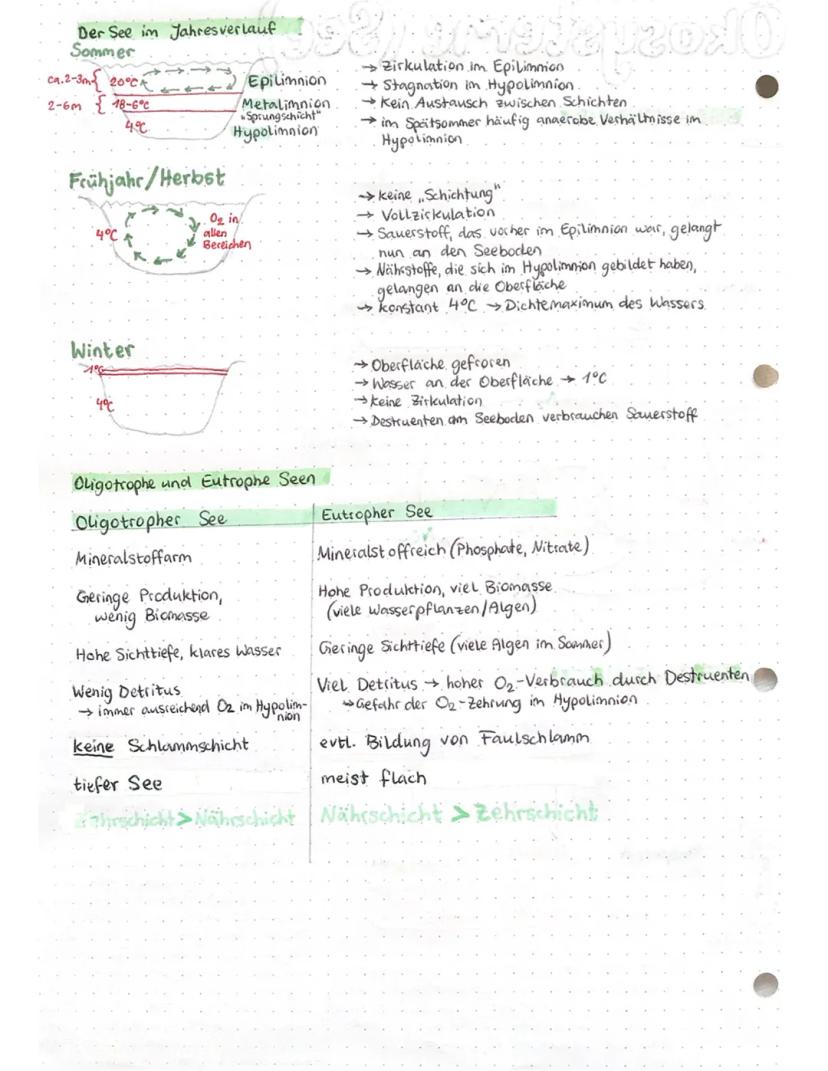 Der See im Jahresverlauf
Sommer
ca. 2-3m { 20°C Epilimnion
2-6m { 18-6°C Metalimnion
"Sprungschicht"
4°C Hypolimnion
→ Zirkulation im Epilimnion
→ Stagnation im Hypolimnion
→ Kein Austausch zwischen Schichten
→ im Spätsommer häufig anaerobe Verhältnisse im
Hypolimnion
Frühjahr/Herbst
4°C
O₂ in
allen
Bereichen
→ keine „Schichtung"
→ Vollzirkulation
→ Sauerstoff, das vorher im Epilimnion war, gelangt
nun an den Seeboden
→ Nährstoffe, die sich im Hypolimnion gebildet haben,
gelangen an die Oberfläche
→ konstant 4°C → Dichtemaximum des Wassers
Winter
1°C
4°C
→ Oberfläche gefroren
→ Wasser an der Oberfläche → 1°C
→ keine Zirkulation
→ Destruenten am Seeboden verbrauchen Sauerstoff
Oligotrophe und Eutrophe Seen
Oligotropher See | Eutropher See
Mineralstoffarm | Mineralstoffreich (Phosphate, Nitrate)
Geringe Produktion, | Hohe Produktion, viel Biomasse
wenig Biomasse | (viele Wasserpflanzen/Algen)
Hohe Sichttiefe, klares Wasser | Geringe Sichttiefe (viele Algen im Sommer)
Wenig Detritus | Viel Detritus → hoher O₂-Verbrauch durch Destruenten
→ immer ausreichend O₂ im Hypolim-
nion | ↳ Gefahr der O₂-Zehrung im Hypolimnion
keine Schlammschicht | evtl. Bildung von Faulschlamm
tiefer See | meist flach
Zehrschicht > Nährschicht | Nährschicht > Zehrschicht